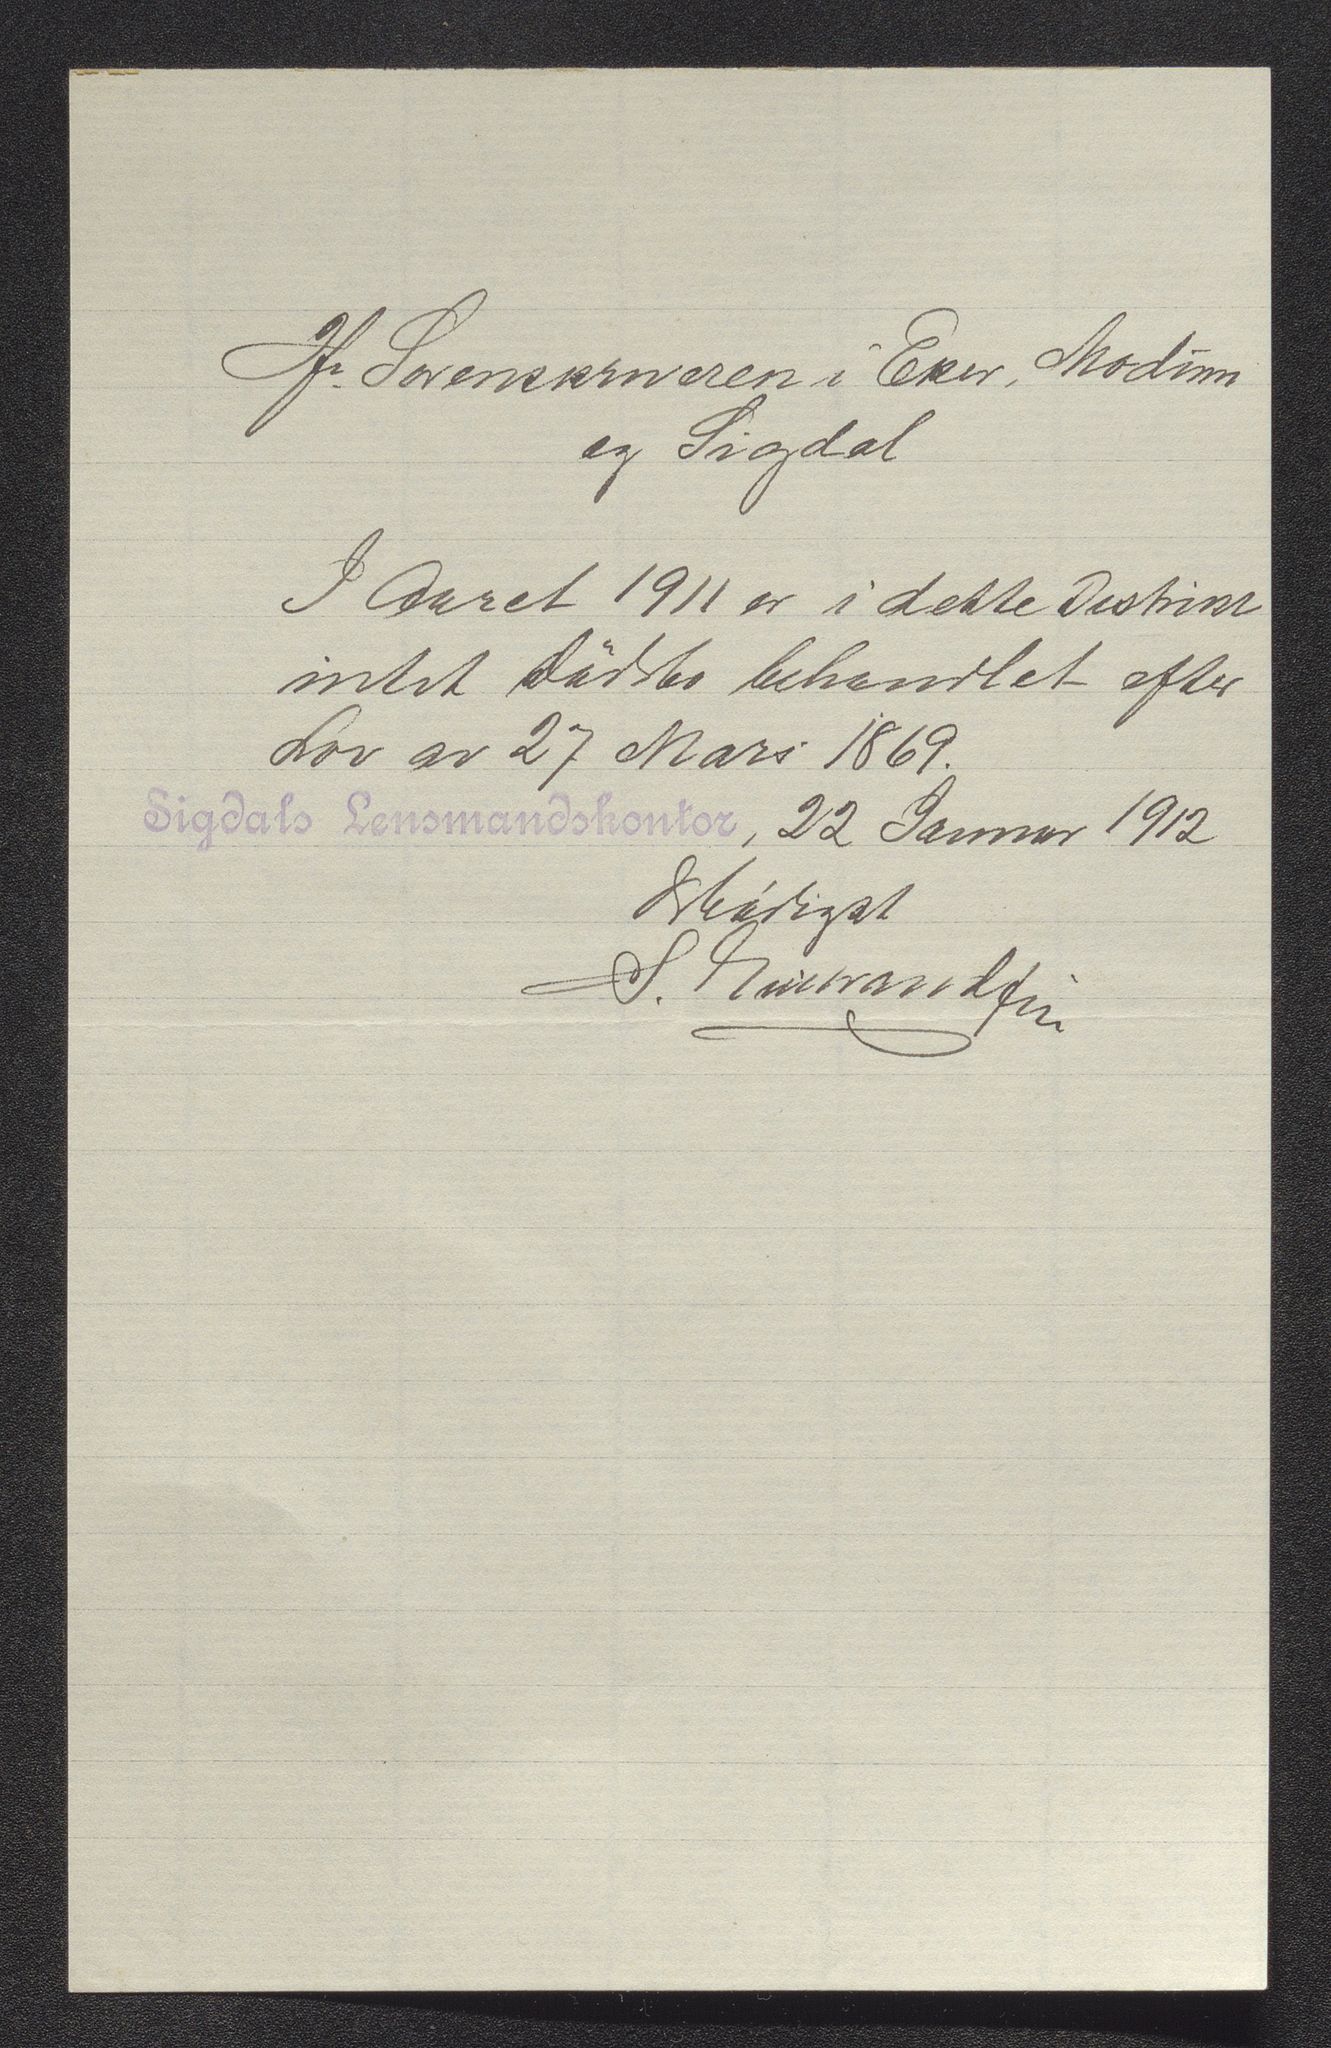 Hr. Sorenskriveren i Eker, Modum
og Sigdal
I Aaret 1911 er i dette Distrikt
intet Dödsbo behandlet efter
Lov av 27 Mars 1869.
Sigdals Lensmandskontor, 22 Januar 1912
Ærbödigst
S.